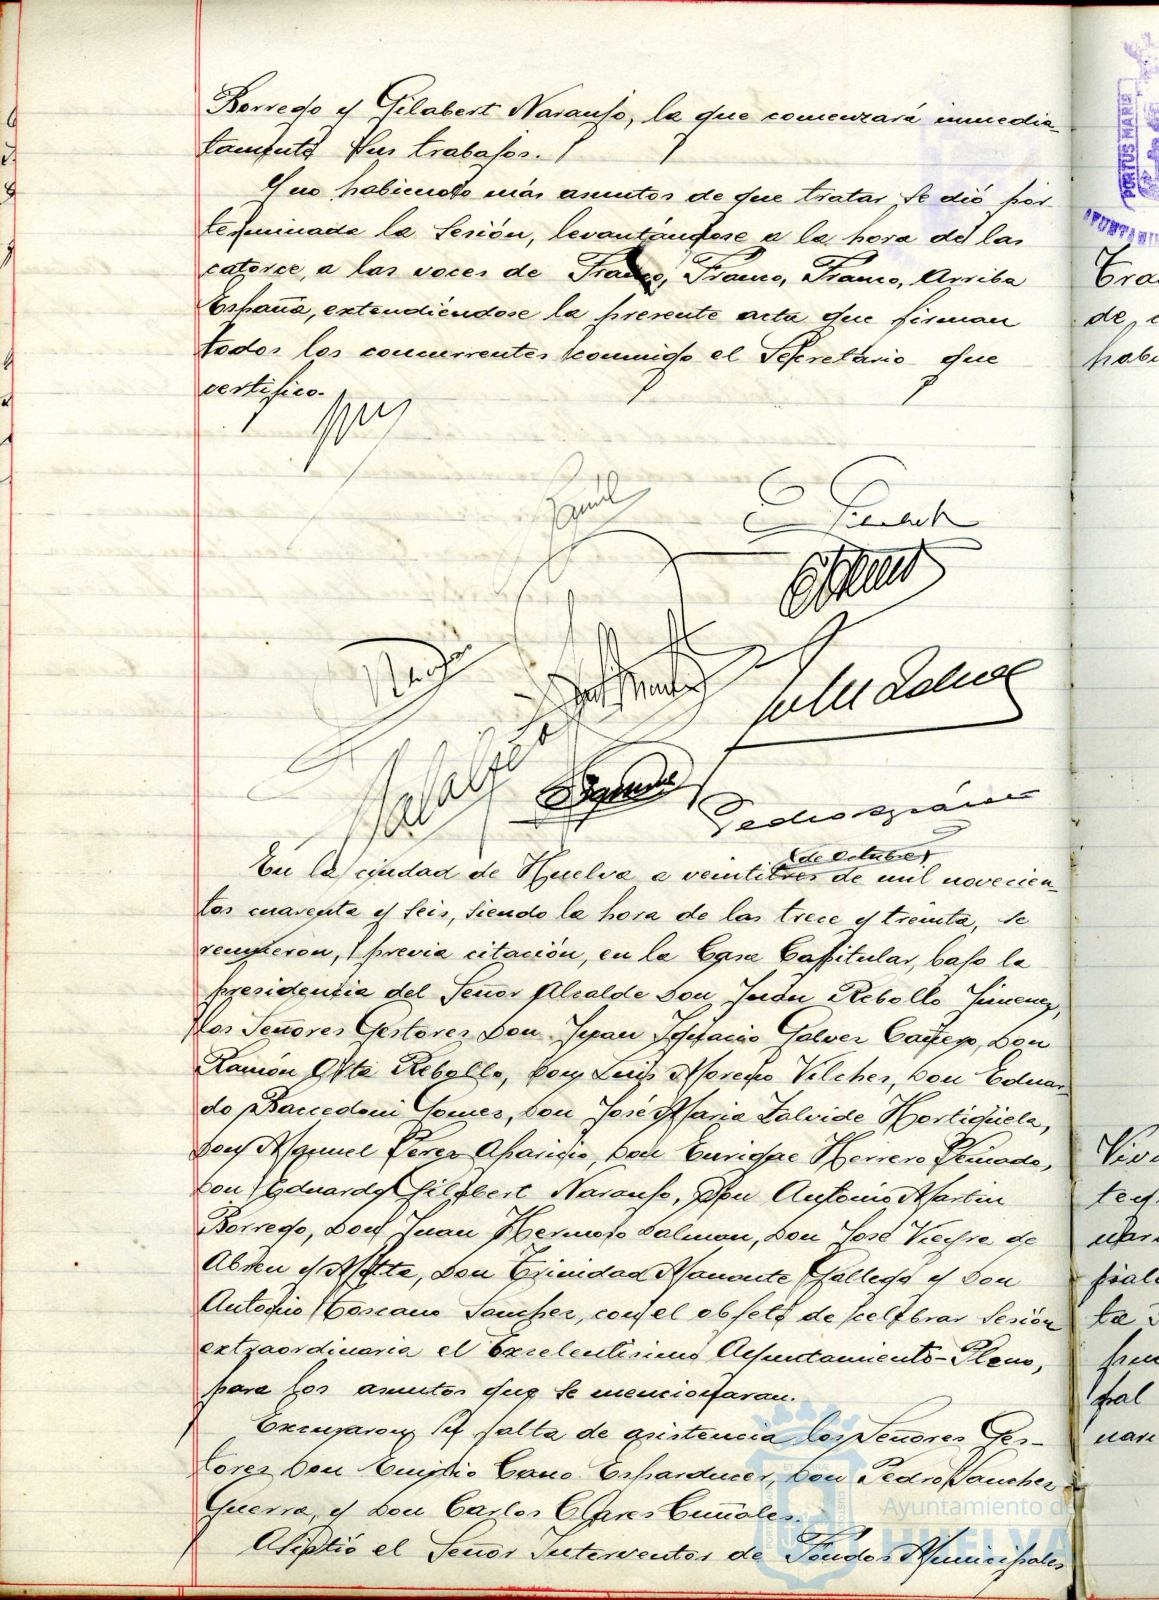 Borrego y Gilabert Naranjo, la que comenzará inmedia-
tamente sus trabajos.
Y no habiendo más asuntos de que tratar, se dió por
terminada la Sesión, levantándose a la hora de las
catorce, a las voces de Franco, Franco, Franco, Arriba
España, extendiéndose la presente acta que firman
todos los concurrentes conmigo el Secretario que
certifico.
Pedro
(de octubre)
En la ciudad de Huelva a veintitres de mil novecien-
tos cuarenta y seis, siendo la hora de las trece y treinta, se
reunieron, previa citación, en la Casa Capitular, bajo la
presidencia del Señor Alcalde Don Juan Rebollo Jimenez,
los Señores Gestores Don Juan Ignacio Galvez Cañero, Don
Ramón Rebollo, Don Luis Moreno Vilches, Don Eduar-
do Baccedoni Gomez, Don José Maria Zalvide Hortigüela,
Don Manuel Perez Aparicio, Don Enrique Herrero Peinado,
Don Eduardo Gilabert Naranjo, Don Antonio Martin
Borrego, Don Juan Hermoso Salmon, Don José Vieyra de
Abreu y Motta, Don Trinidad Manante Gallego y Don
Antonio Toscano Sanchez, con el objeto de celebrar Sesión
extraordinaria el Excelentisimo Ayuntamiento-Pleno,
para los asuntos que se mencionaran.
Excusaron su falta de asistencia los Señores Ges-
tores Don Emilio Cano Esparducer, Don Pedro Sanchez
Guerra, y Don Carlos Clares Cuñales.
Asistió el Señor Interventor de Fondos Municipales
Ayuntamiento de
HUELVA
PORTUS MARIS